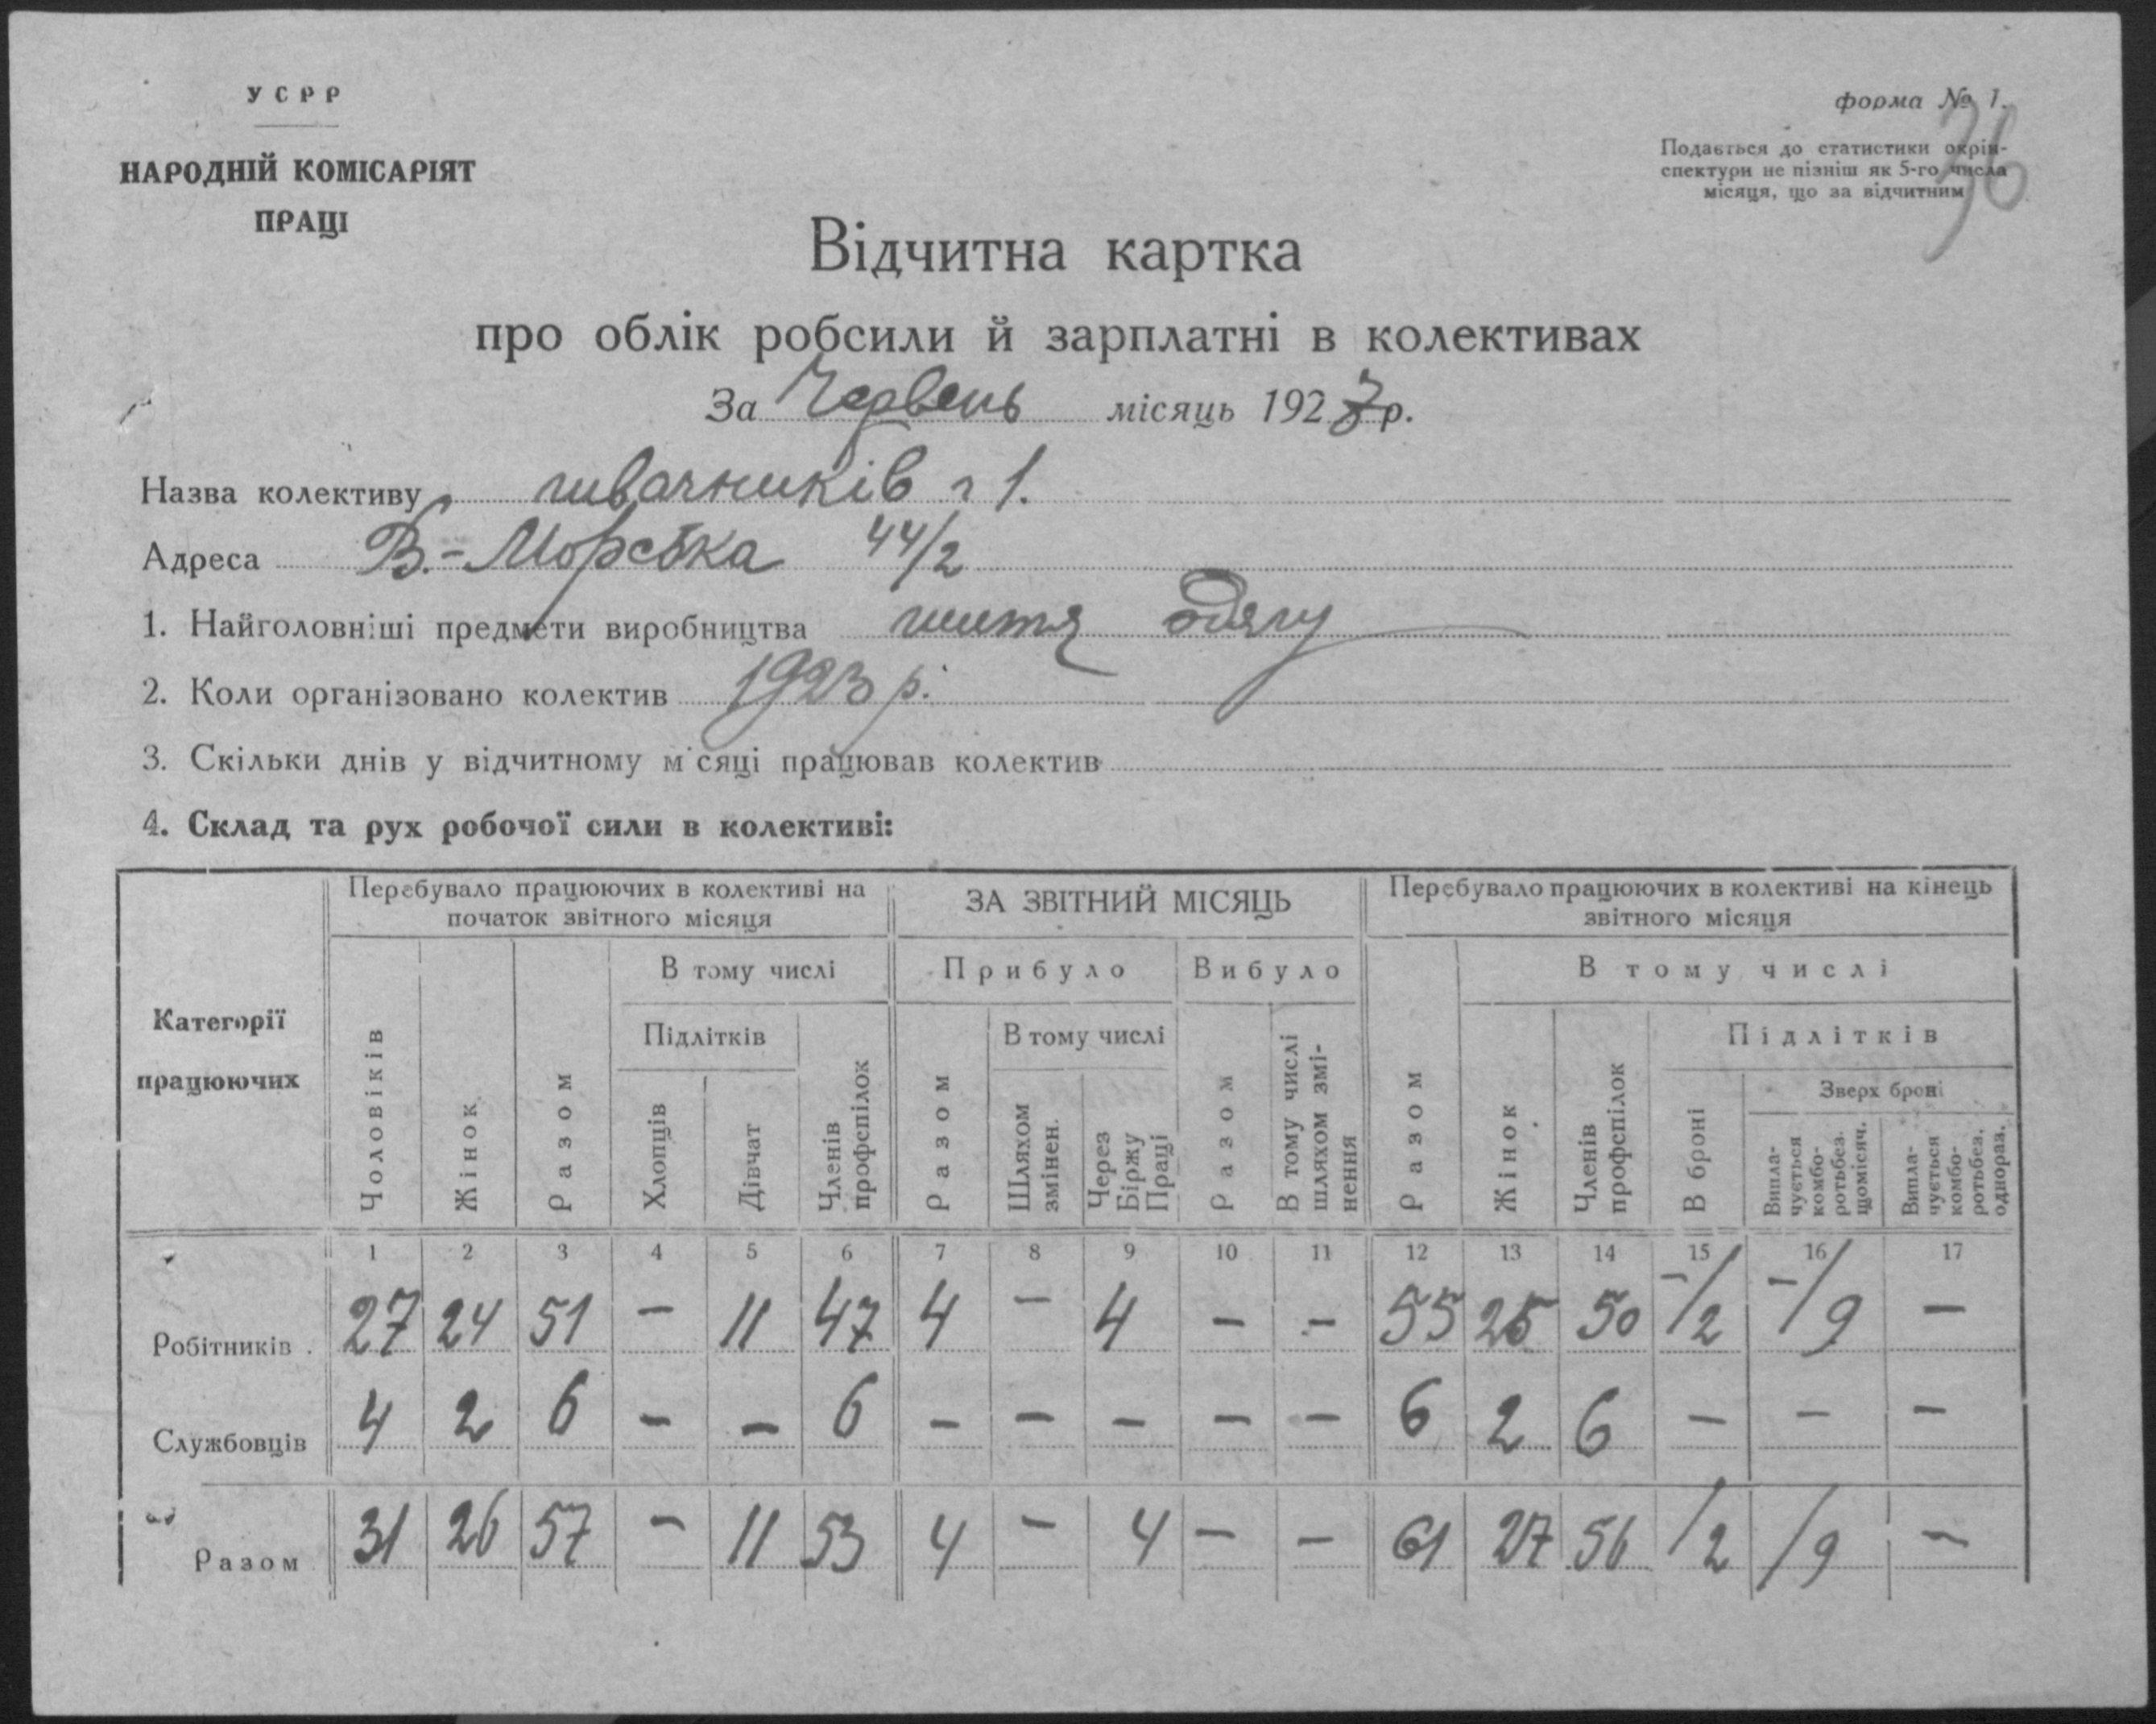 УСРР
НАРОДНІЙ КОМІСАРІЯТ
ПРАЦІ
форма № 1.
Подається до статистики окрін-
спектури не пізніш як 5-го числа
місяця, що за відчитним
36
Відчитна картка
про облік робсили й зарплатні в колективах
За Червень місяць 1927 р.
Назва колективу швачників 1.
Адреса В.-Морська 44/2
1. Найголовніші предмети виробництва шиття одягу
2. Коли організовано колектив 1923 р.
3. Скільки днів у відчитному місяці працював колектив
4. Склад та рух робочої сили в колективі:
Категорії працюючих
Перебувало працюючих в колективі на початок звітного місяця
ЗА ЗВІТНИЙ МІСЯЦЬ
Перебувало працюючих в колективі на кінець звітного місяця
В тому числі
Прибуло
Вибуло
В тому числі
Підлітків
В тому числі
Підлітків
Зверх броні
Чоловіків
Жінок
Разом
Хлопців
Дівчат
Членів профспілок
Разом
Шляхом змінен.
Через Біржу Праці
Разом
В тому числі шляхом змі-нення
Разом
Жінок
Членів профспілок
В броні
Випла-чується комбо-ротьбез. щомісяч.
Випла-чується комбо-ротьбез. однораз.
1 2 3 4 5 6 7 8 9 10 11 12 13 14 15 16 17
Робітників . 27 24 51 – 11 47 4 – 4 – – 55 25 50 –/2 –/9 –
Службовців 4 2 6 – – 6 – – – – – 6 2 6 – – –
Разом 31 26 57 – 11 53 4 – 4 – – 61 27 56 /2 /9 –